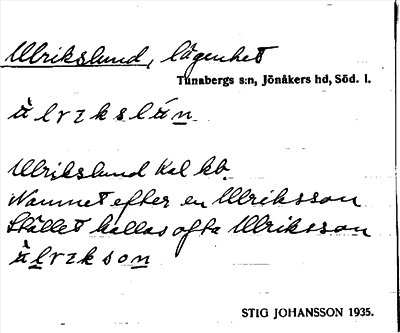 Ulrikslund, lägenhet
Tunabergs s:n, Jönåkers hd, Söd. l.
Ulrikslund Kal kb.
Namnet efter en Ulriksson
Stället kallas ofta Ulriksson
STIG JOHANSSON 1935.